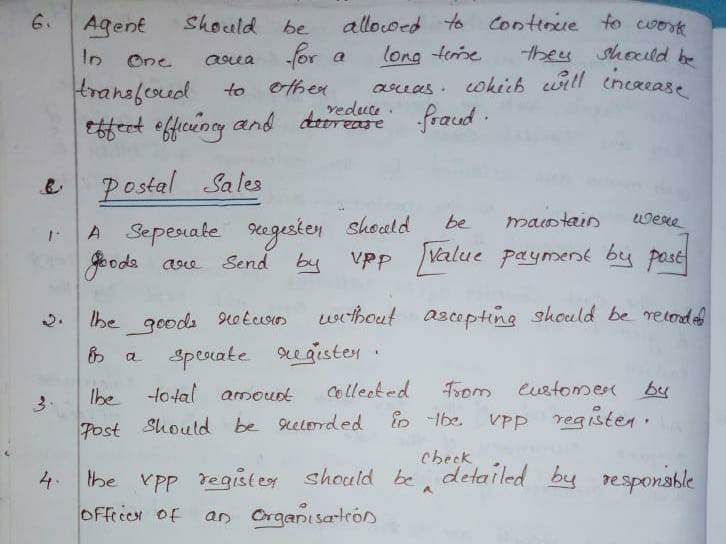 6. Agent should be allowed to continue to work
In one area for a long time they should be
transfered to other areas. which will increase
effect efficiency and decrease reduce fraud.
e. Postal Sales
1. A Seperate register should be maintain were
goods are Send by VPP [Value payment by post]
2. The goods return without ascepting should be recorded
in a sperate register.
3. The total amount collected from customer by
Post should be recorded in the VPP register.
4. The VPP register should be check detailed by responsible
officer of an organisation